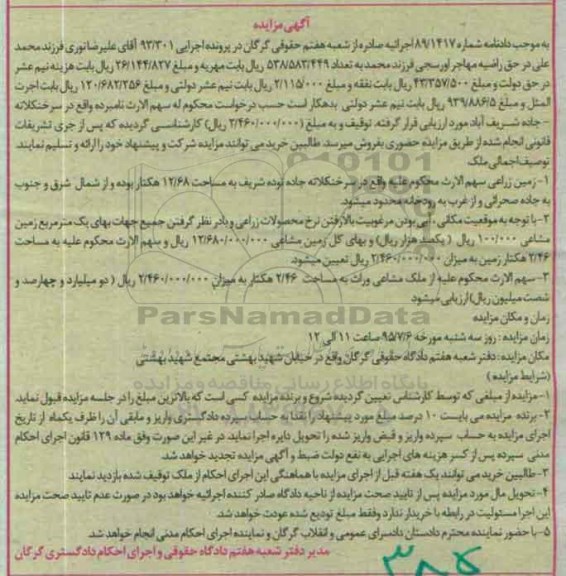 آگهی مزایده
به موجب دادنامه شماره ۸۹/۱۴۱۷ اجرائیه صادره از شعبه هفتم حقوقی گرگان در پرونده اجرایی ۹۳/۳۰۱ آقای علیرضا نوری فرزند محمد
علی در حق راضیه مهاجر اورسجی فرزند محمد به تعداد ۵۳۸/۵۸۲/۴۴۹ ریال بابت مهریه و مبلغ ۲۶/۱۴۴/۸۲۷ ریال بابت هزینه نیم عشر
در حق دولت و مبلغ ۴۳/۳۵۷/۵۰۰ ریال بابت نفقه و مبلغ ۲/۱۱۵/۰۰۰ ریال بابت نیم عشر دولتی و مبلغ ۱۲۰/۶۸۲/۳۵۶ ریال بابت اجرت
المثل و مبلغ ۹۳۹/۸۸۶/۵ ریال بابت نیم عشر دولتی بدهکار است حسب درخواست محکوم له سهم الارث نامبرده واقع در سرخنکلاته
- جاده شریف آباد مورد ارزیابی قرار گرفته، توقیف و به مبلغ (۲/۴۶۰/۰۰۰/۰۰۰ ریال) کارشناسی گردیده که پس از جری تشریفات
قانونی انجام شده از طریق مزایده حضوری بفروش میرسد. طالبین خرید می توانند مزایده شرکت و پیشنهاد خود را ارائه و تسلیم نمایند.
توصیف اجمالی ملک
۱- زمین زراعی سهم الارث محکوم علیه واقع در سرخنکلاته جاده توده شریف به مساحت ۱۲/۶۸ هکتار بوده و از شمال شرق و جنوب
به جاده صحرائی و از غرب به رودخانه محدود میشود.
۲- با توجه به موقعیت مکانی، آبی بودن مرغوبیت بالا رفتن نرخ محصولات زراعی و با در نظر گرفتن جمیع جهات بهای یک مترمربع زمین
مشاعی ۱۰۰/۰۰۰ ریال ( یکصد هزار ریال) و بهای کل زمین مشاعی ۱۲/۶۸۰/۰۰۰/۰۰۰ ریال و سهم الارث محکوم علیه به مساحت
۲/۴۶ هکتار زمین به میزان ۲/۴۶۰/۰۰۰/۰۰۰ ریال تعیین میشود.
۳- سهم الارث محکوم علیه از ملک مشاعی وراث به مساحت ۲/۴۶ هکتار به میزان ۲/۴۶۰/۰۰۰/۰۰۰ ریال ( دو میلیارد و چهارصد و
شصت میلیون ریال) ارزیابی میشود
زمان و مکان مزایده
زمان مزایده : روز سه شنبه مورخه ۹۵/۷/۶ ساعت ۱۱ الی ۱۲
مکان مزایده: دفتر شعبه هفتم دادگاه حقوقی گرگان واقع در خیابان شهید بهشتی مجتمع شهید بهشتی
(شرایط مزایده )
۱- مزایده از مبلغی که توسط کارشناس تعیین گردیده شروع و برنده مزایده کسی است که بالاترین مبلغ را در جلسه مزایده قبول نماید.
۲- برنده مزایده می بایست ۱۰ درصد مبلغ مورد پیشنهاد را نقدا به حساب سپرده دادگستری واریز و مابقی آن را ظرف یکماه از تاریخ
اجرای مزایده به حساب سپرده واریز و قبض واریز شده را تحویل دایره اجرا نماید. در غیر این صورت وفق ماده ۱۲۹ قانون اجرای احکام
مدنی سپرده پس از کسر هزینه های اجرایی به نفع دولت ضبط و آگهی مزایده تجدید خواهد شد.
۳- طالبین خرید می توانند یک هفته قبل از اجرای مزایده با هماهنگی این اجرای احکام از ملک توقیف شده بازدید نمایند
۴- تحویل مال مورد مزایده پس از تایید صحت مزایده از ناحیه دادگاه صادر کننده اجرائیه خواهد بود در صورت عدم تایید صحت مزایده
این اجرا مسئولیت در رابطه با خریدار ندارد و فقط مبلغ تودیع شده عودت خواهد شد.
۵- با حضور نماینده محترم دادستان دادسرای عمومی و انقلاب گرگان و نماینده اجرای احکام مدنی انجام خواهد شد.
مدیر دفتر شعبه هفتم دادگاه حقوقی و اجرای احکام دادگستری گرگان
ParsNamadData
پایگاه اطلاع رسانی مناقصه و مزایده